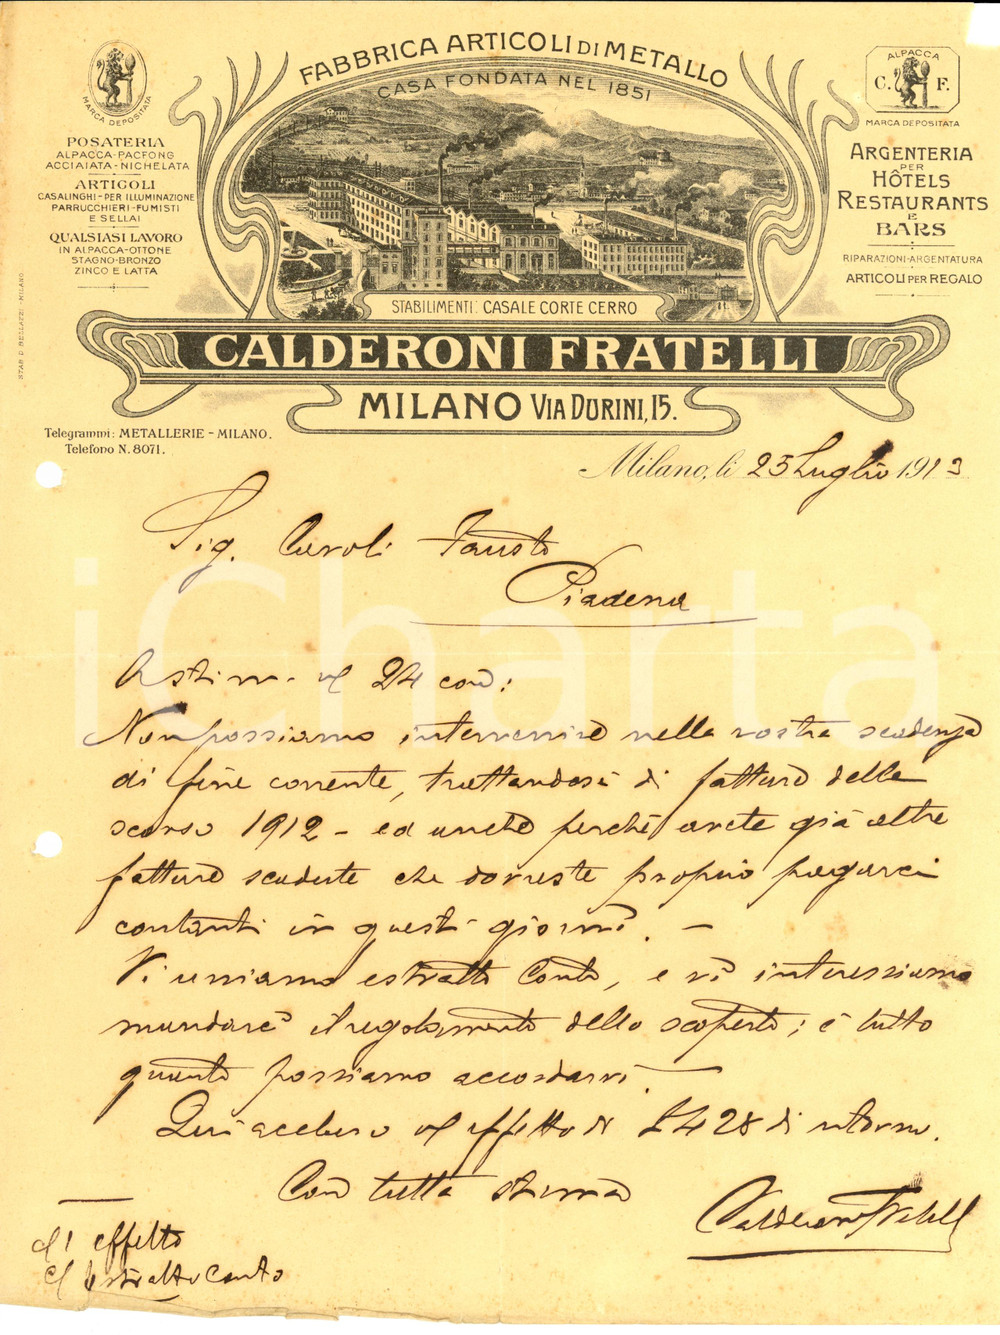 FABBRICA ARTICOLI DI METALLO
CASA FONDATA NEL 1851
MARCA DEPOSITATA
POSATERIA
ALPACCA-PACFONG
ACCIAIATA-NICHELATA
ARTICOLI
CASALINGHI-PER ILLUMINAZIONE
PARRUCCHIERI-FUMISTI
E SELLAI
QUALSIASI LAVORO
IN ALPACCA-OTTONE
STAGNO-BRONZO
ZINCO E LATTA
ALPACCA
C. F.
MARCA DEPOSITATA
ARGENTERIA
PER
HÔTELS
RESTAURANTS
E
BARS
RIPARAZIONI-ARGENTATURA
ARTICOLI PER REGALO
STABILIMENTI: CASALE CORTE CERRO
CALDERONI FRATELLI
MILANO VIA DURINI, 15.
Telegrammi: METALLERIE - MILANO.
Telefono N. 8071.
Milano, li 25 Luglio 1913
Sig. Fausto
Piadena
24 corr:
Non possiamo intervenire nella vostra scadenza
di fine corrente, trattandosi di fatture dello
scorso 1912 - ed anche perché avete già altre
fatture scadute che dovreste proprio pagarci
contanti in questi giorni. -
Vi uniamo estratto Conto, e vi interessiamo
mandarci il regolamento dello scoperto; è tutto
quanto possiamo accordarvi. -
Qui accluso effetto di L 428 di ritorno.
Con tutta stima
Calderoni Fratelli
1 effetto
1 estratto conto
iCharta